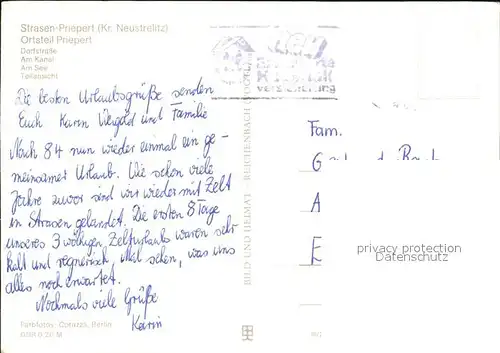 Strasen-Priepert (Kr. Neustrelitz)
Ortsteil Priepert
Dorfstraße
Am Kanal
Am See
Teilansicht
Die besten Urlaubsgrüße senden
Euch Karin und Familie
Nach 84 nun wieder einmal ein ge-
meinsamer Urlaub. Wie schon viele
Jahre zuvor sind wir wieder mit Zelt
in Strasen gelandet. Die ersten 8 Tage
unseres 3 wöchigen Zelturlaubs waren sehr
kalt und regnerisch. Mal sehen, was uns
alles noch erwartet.
Nochmals viele Grüße
Karin
Farbfotos: Berlin
BILD UND HEIMAT REICHENBACH
versicherung
Fam.
G
A
E
privacy protection
Datenschutz